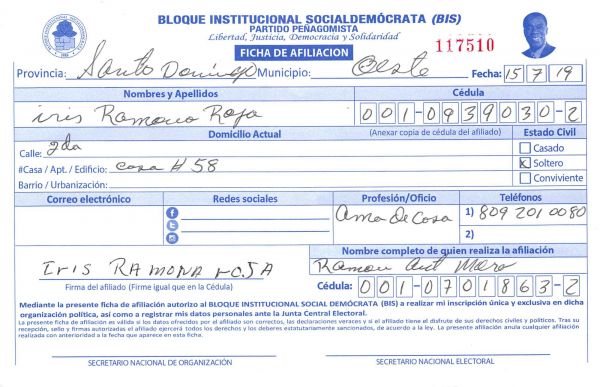 BLOQUE INSTITUCIONAL SOCIALDEMÓCRATA (BIS)
PARTIDO PEÑAGOMISTA
Libertad, Justicia, Democracia y Solidaridad
FICHA DE AFILIACION
117510
Provincia: Santo Domingo Municipio: Oeste Fecha: 15 7 19
Nombres y Apellidos
Cédula
iris Ramona Roja
001-0939030-2
Domicilio Actual
(Anexar copia de cédula del afiliado)
Estado Civil
Calle: 2da
Casado
#Casa / Apt. / Edificio: casa # 58
x Soltero
Barrio / Urbanización:
Conviviente
Correo electrónico
Redes sociales
Profesión/Oficio
Teléfonos
Ama De Casa
1) 809 201 0080
2)
Nombre completo de quien realiza la afiliación
IRIS RAMONA ROJA
Ramon Ant
Firma del afiliado (Firme igual que en la Cédula)
Cédula: 001-0701863-2
Mediante la presente ficha de afiliación autorizo al BLOQUE INSTITUCIONAL SOCIAL DEMÓCRATA (BIS) a realizar mi inscripción única y exclusiva en dicha
organización política, así como a registrar mis datos personales ante la Junta Central Electoral.
La presente ficha de afiliación es válida si los datos ofrecidos por el afiliado son correctos, las declaraciones veraces y si el afiliado tiene el disfrute de sus derechos civiles y políticos. Tras su
recepción, sello y firmas autorizadas el afiliado ejercerá todos los derechos y los deberes estatutariamente sancionados, de acuerdo a la ley. La presente afiliación anula cualquier afiliación
realizada con anterioridad a la fecha que aparece en esta ficha.
SECRETARIO NACIONAL DE ORGANIZACIÓN
SECRETARIO NACIONAL ELECTORAL